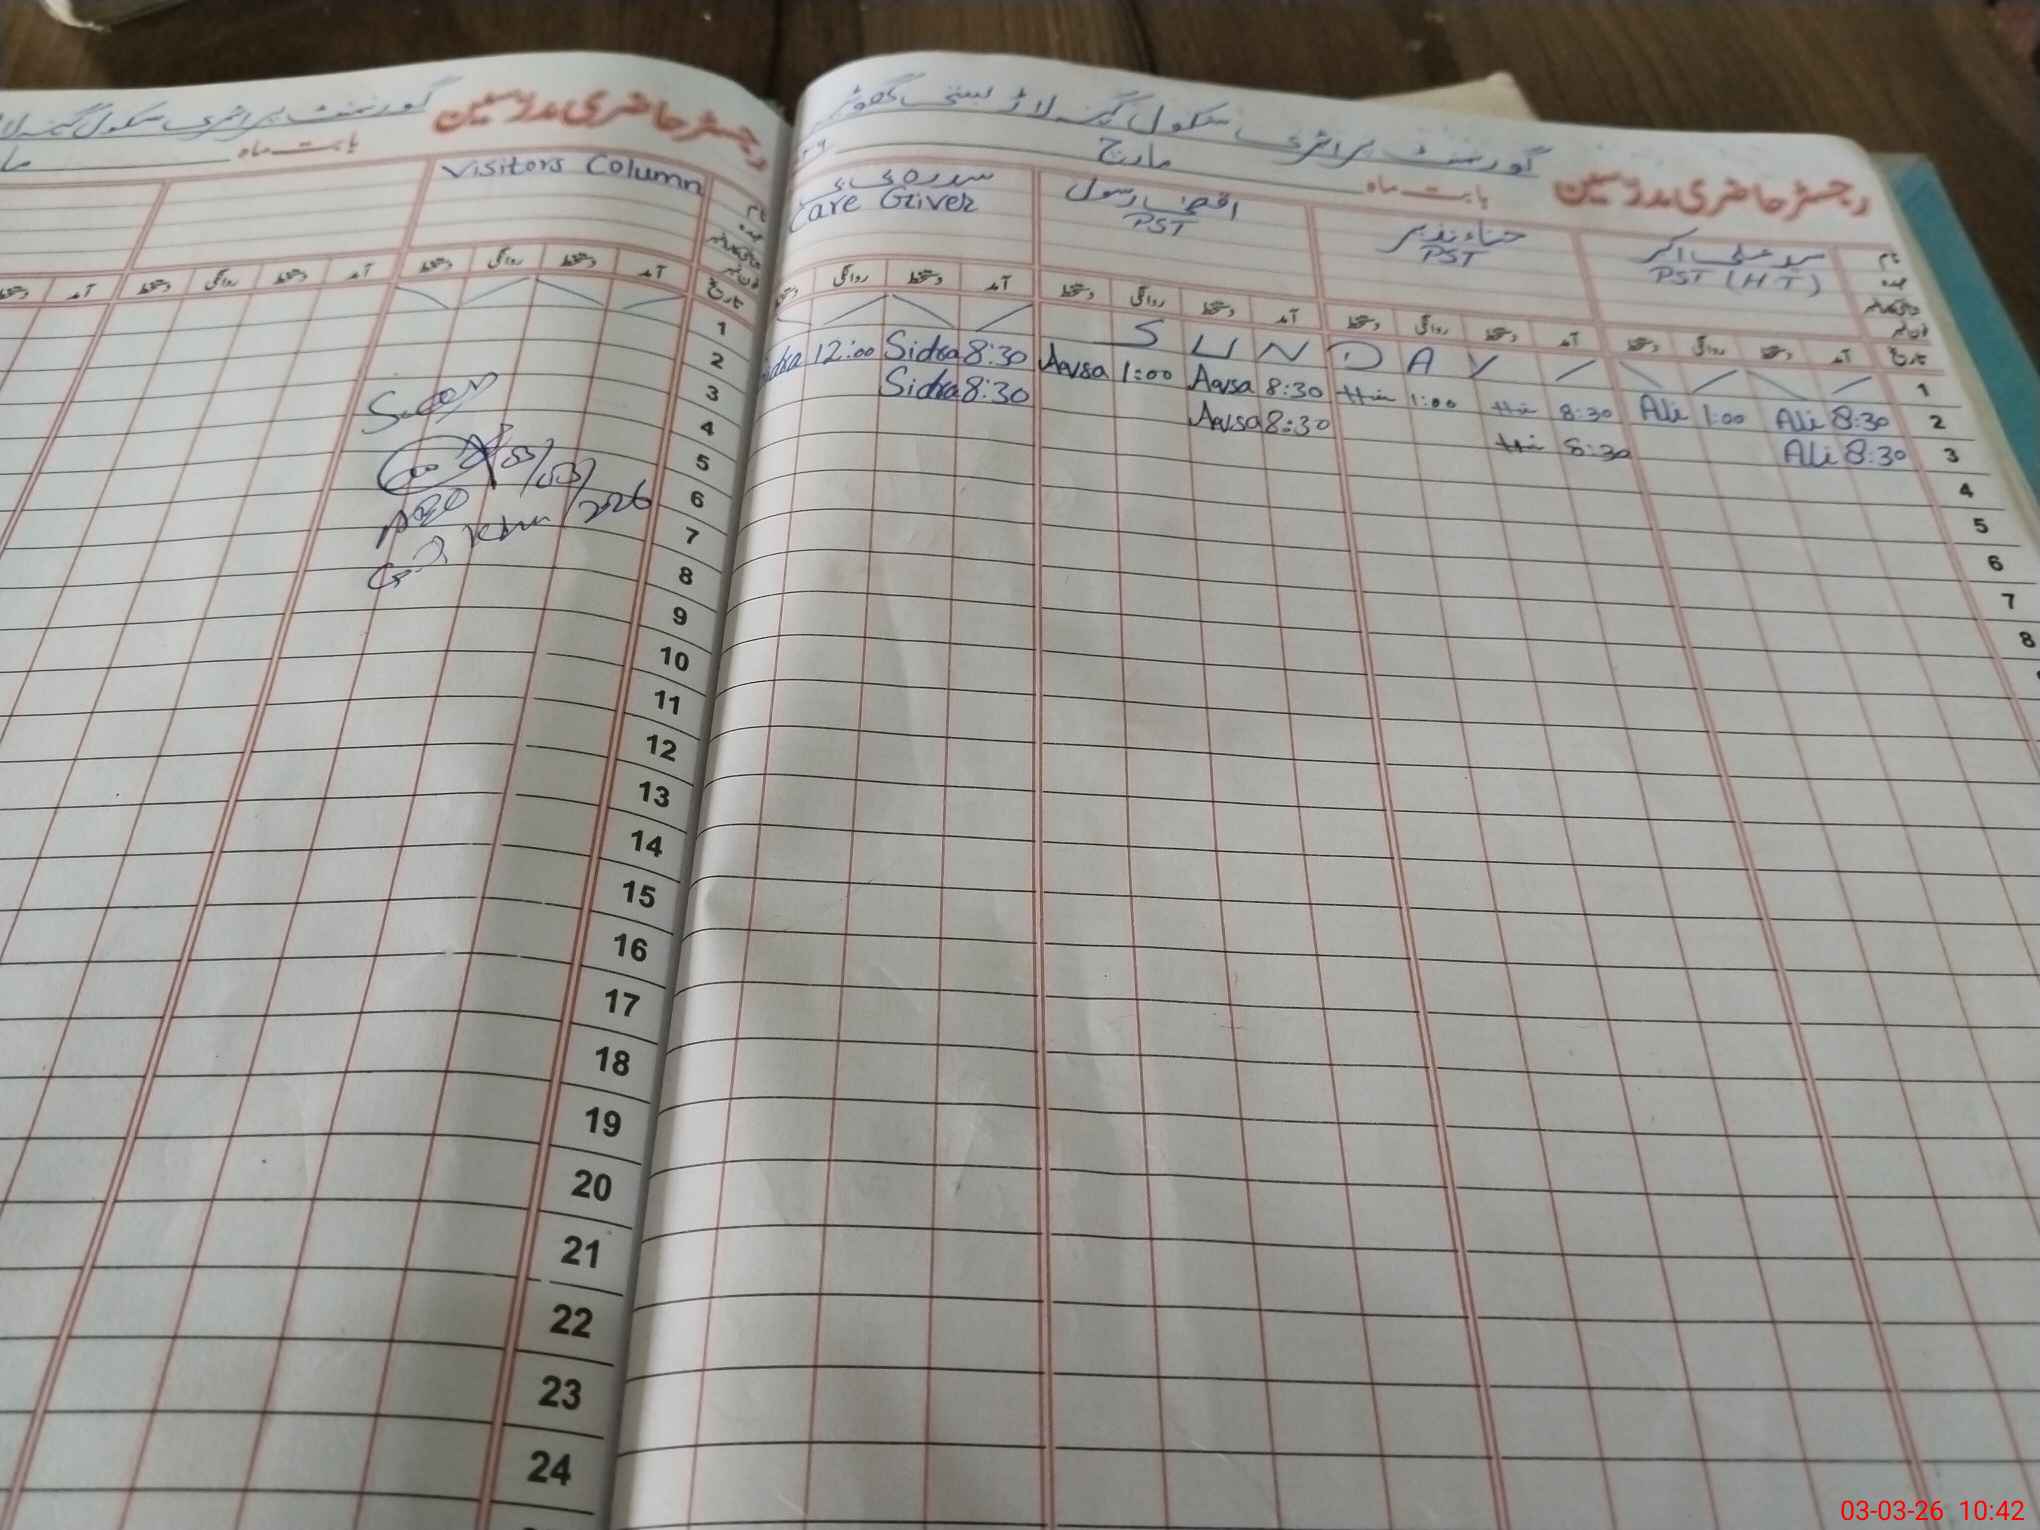 رجسٹر حاضری مدرسین گورنمنٹ پرائمری سکول
بابت ماہ مارچ
نام
عہدہ
فون نمبر
سید علی اکبر
PST (HT)
حناء نذیر
PST
PST
Care Giver
تاریخ آمد دستخط روانگی دستخط آمد دستخط روانگی دستخط آمد دستخط روانگی دستخط آمد دستخط روانگی
1 SUNDAY
2 Ali 8:30 Ali 1:00 8:30 1:00 Aqsa 8:30 Aqsa 1:00 Sidra 8:30 Sidra 12:00
3 Ali 8:30 8:30 Aqsa 8:30 Sidra 8:30
4
5
6
7
8
رجسٹر حاضری مدرسین گورنمنٹ پرائمری سکول
بابت ماہ
نام
عہدہ
فون نمبر
Visitors Column
تاریخ آمد دستخط روانگی دستخط آمد دستخط روانگی دستخط آمد
1
2
3
4
5
6
7
8
9
10
11
12
13
14
15
16
17
18
19
20
21
22
23
24
03/03/2026
AEO
03-03-26 10:42